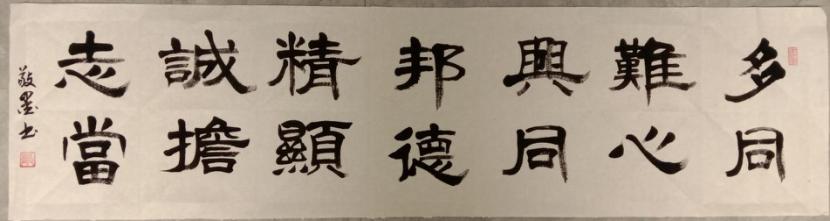 多難興邦精誠志
同心同德顯擔當
敬墨书